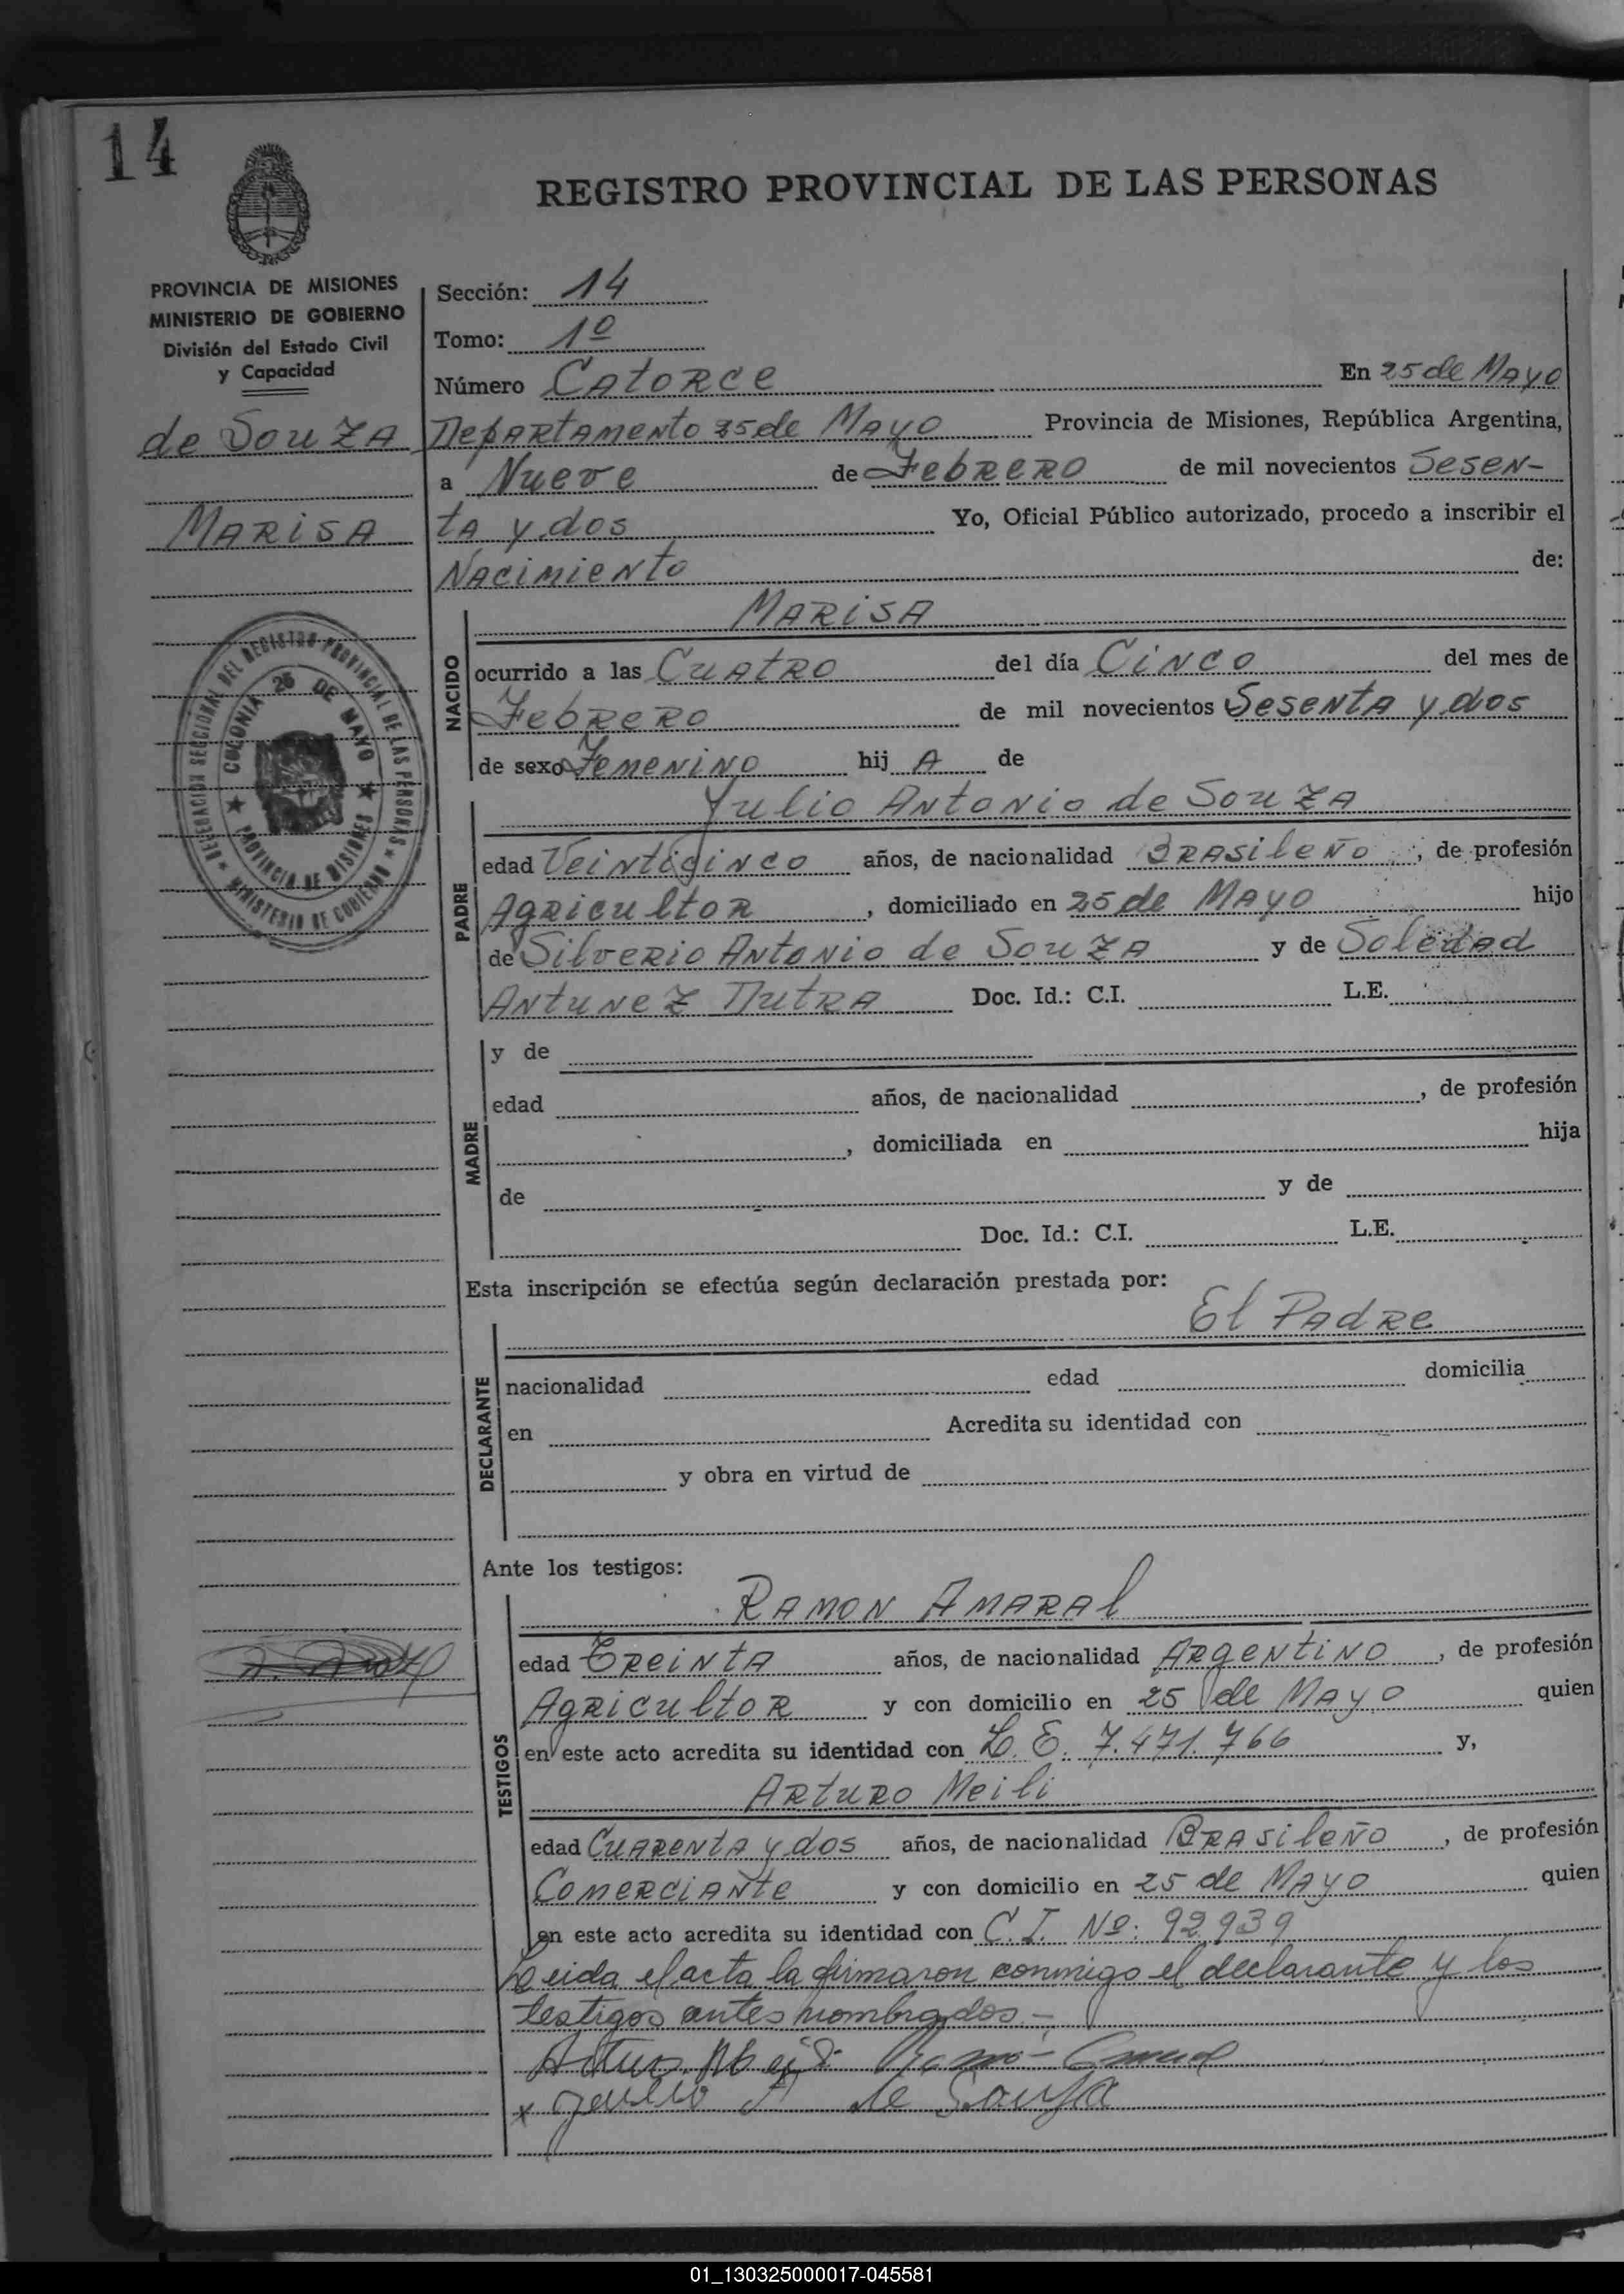 14
REGISTRO PROVINCIAL DE LAS PERSONAS
PROVINCIA DE MISIONES
MINISTERIO DE GOBIERNO
División del Estado Civil
y Capacidad
de Souza
Marisa
DELEGACION SECCIONAL DEL REGISTRO PROVINCIAL DE LAS PERSONAS ★ MINISTERIO DE GOBIERNO ★
COLONIA 25 DE MAYO ★ PROVINCIA DE MISIONES ★
Sección: 14
Tomo: 1º
Número Catorce En 25 de Mayo
Departamento 25 de Mayo Provincia de Misiones, República Argentina,
a Nueve de Febrero de mil novecientos Sesen-
ta y dos Yo, Oficial Público autorizado, procedo a inscribir el
Nacimiento de:
NACIDO
Marisa
ocurrido a las Cuatro del día Cinco del mes de
Febrero de mil novecientos Sesenta y dos
de sexo Femenino hij A de
PADRE
Julio Antonio de Souza
edad Veinticinco años, de nacionalidad Brasileño, de profesión
Agricultor, domiciliado en 25 de Mayo hijo
de Silverio Antonio de Souza y de Soledad
Antunez Dutra Doc. Id.: C.I. L.E.
MADRE
y de
edad años, de nacionalidad , de profesión
, domiciliada en hija
de y de
Doc. Id.: C.I. L.E.
Esta inscripción se efectúa según declaración prestada por:
DECLARANTE
El Padre
nacionalidad edad domicilia
en Acredita su identidad con
y obra en virtud de
Ante los testigos:
TESTIGOS
Ramon Amaral
edad Treinta años, de nacionalidad Argentino, de profesión
Agricultor y con domicilio en 25 de Mayo quien
en este acto acredita su identidad con L. E. 7.471.766 y,
Arturo Meili
edad Cuarenta y dos años, de nacionalidad Brasileño, de profesión
Comerciante y con domicilio en 25 de Mayo quien
en este acto acredita su identidad con C. I. Nº: 92.939
Leida el acta la firmaron conmigo el declarante y los
testigos antes nombrados.-
x Julio A de Souza
01_130325000017-045581